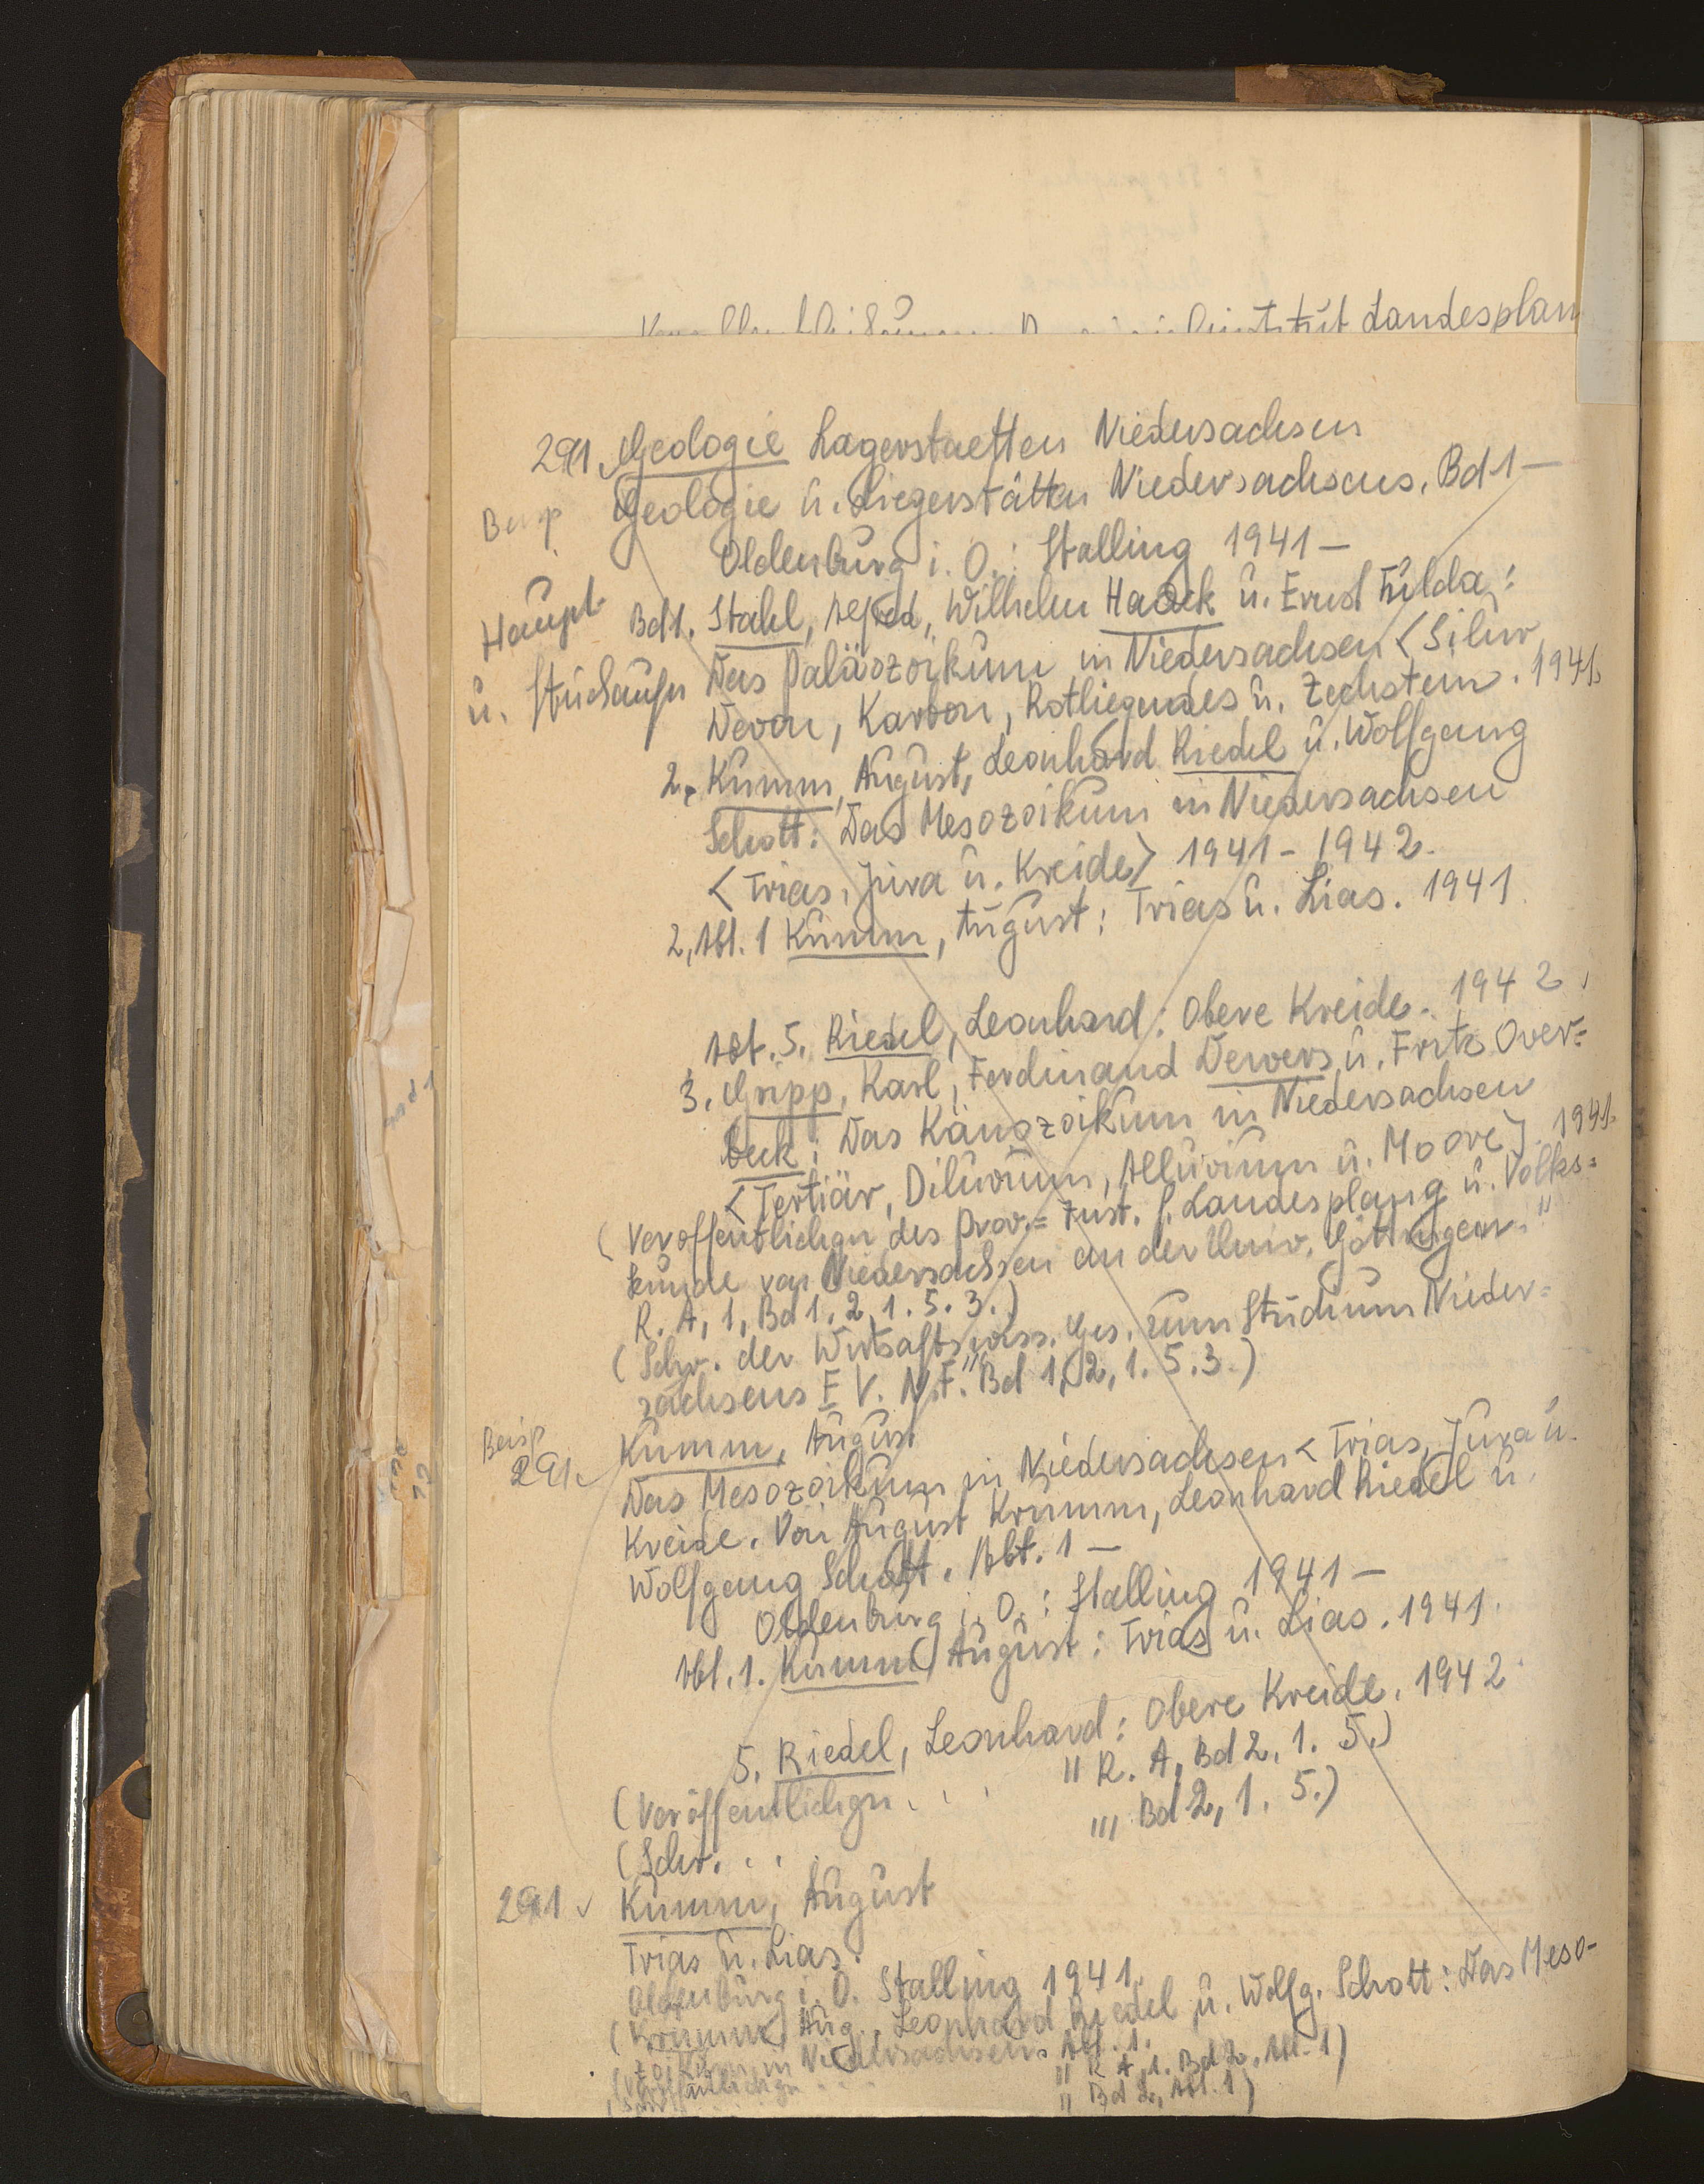 Landesplan
291 Geologie Lagerstaetten Niedersachsen
Beisp Geologie u. Liegerstätten Niedersachsens. Bd 1 –
Oldenburg i. O. : Stalling 1941 –
Haupt Bd 1. Stahl, Alfred, Wilhelm Haack u. Ernst Fulda:
u. Stückaufn Das Paläozoikum in Niedersachsen < Silur
Devon, Karbon, Rotliegendes u. Zechstein. 1941.
2. Kumm, August, Leonhard Riedel u. Wolfgang
Schott: Das Mesozoikum in Niedersachsen
< Trias, Jura u. Kreide> 1941 – 1942.
2, Abt. 1 Kumm, August: Trias u. Lias. 1941
Abt. 5. Riedel, Leonhard: Obere Kreide. 1942.
3. Gripp, Karl, Ferdinand Dewers u. Fritz Over=
beck: Das Känozoikum in Niedersachsen
< Tertiär, Diluvium, Alluvium u. Moore]. 1941.
(Veröffentlichgn des Prov.= Inst. f. Landesplang u. Volks=
kunde von Niedersachsen an der Univ. Göttingen."
R. A, 1, Bd 1. 2, 1. 5. 3.)
(Schr. der Wirtsaftswiss. Ges. zum Studium Nieder=
sachsens E V. N. F." Bd 1, 2, 1. 5. 3.)
Beisp Kumm, August
291. Das Mesozoikum in Niedersachsen < Trias, Jura u.
Kreide. Von August Krumm, Leonhard Riedel u.
Wolfgang Schott. Abt. 1 –
Oldenburg i. O. : Stalling 1941 –
Abt. 1. Kumm, August: Trias u. Lias. 1941.
5. Riedel, Leonhard: Obere Kreide. 1942
(Veröffentlichgn . . . " R. A, Bd 2, 1. 5.)
(Schr. . . . "' Bd 2, 1. 5.)
291 Kumm, August
Trias u. Lias.
Oldenburg i. O. Stalling 1941.
(Krumm, Aug., Leonhard Riedel u. Wolfg. Schott: Das Meso-
zoikum in Niedersachsen. Abt. 1.
(Veröffentlichgn . . . " R A, 1. Bd 2, Abt. 1)
(Schr. . . . " Bd 2, Abt. 1)